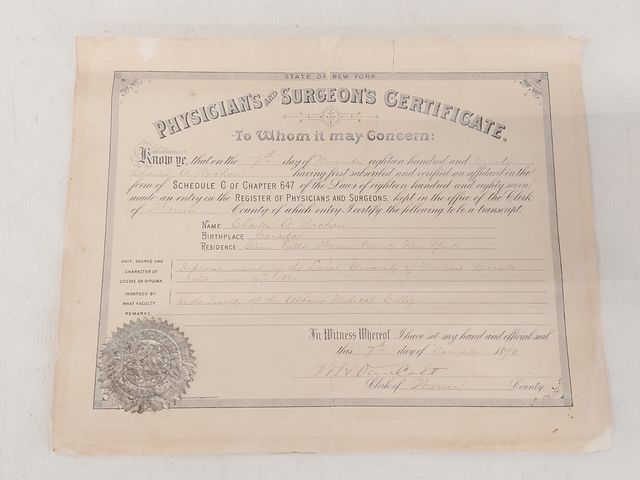 STATE OF NEW YORK.
PHYSICIAN'S AND SURGEON'S CERTIFICATE.
To Whom it may Concern:
Know ye, that on the 7th day of November eighteen hundred and Ninety
Charles A. having first subscribed and verified an affidavit in the
form of SCHEDULE C OF CHAPTER 647 of the Laws of eighteen hundred and eighty-seven,
made an entry in the REGISTER OF PHYSICIANS AND SURGEONS, kept in the office of the Clerk
of Warren County of which entry I certify the following to be a transcript.
NAME Charles A.
BIRTHPLACE Canada
RESIDENCE Glens Falls Warren County New York
DATE, SOURCE AND
CHARACTER OF
LICENSE OR DIPLOMA.
Diploma issued by the University of Montreal Canada
INDORSED BY
WHAT FACULTY.
by the Faculty of the Albany Medical College
REMARKS.
In Witness Whereof, I have set my hand and official seal
this 7th day of November 1890
Clerk of Warren County.